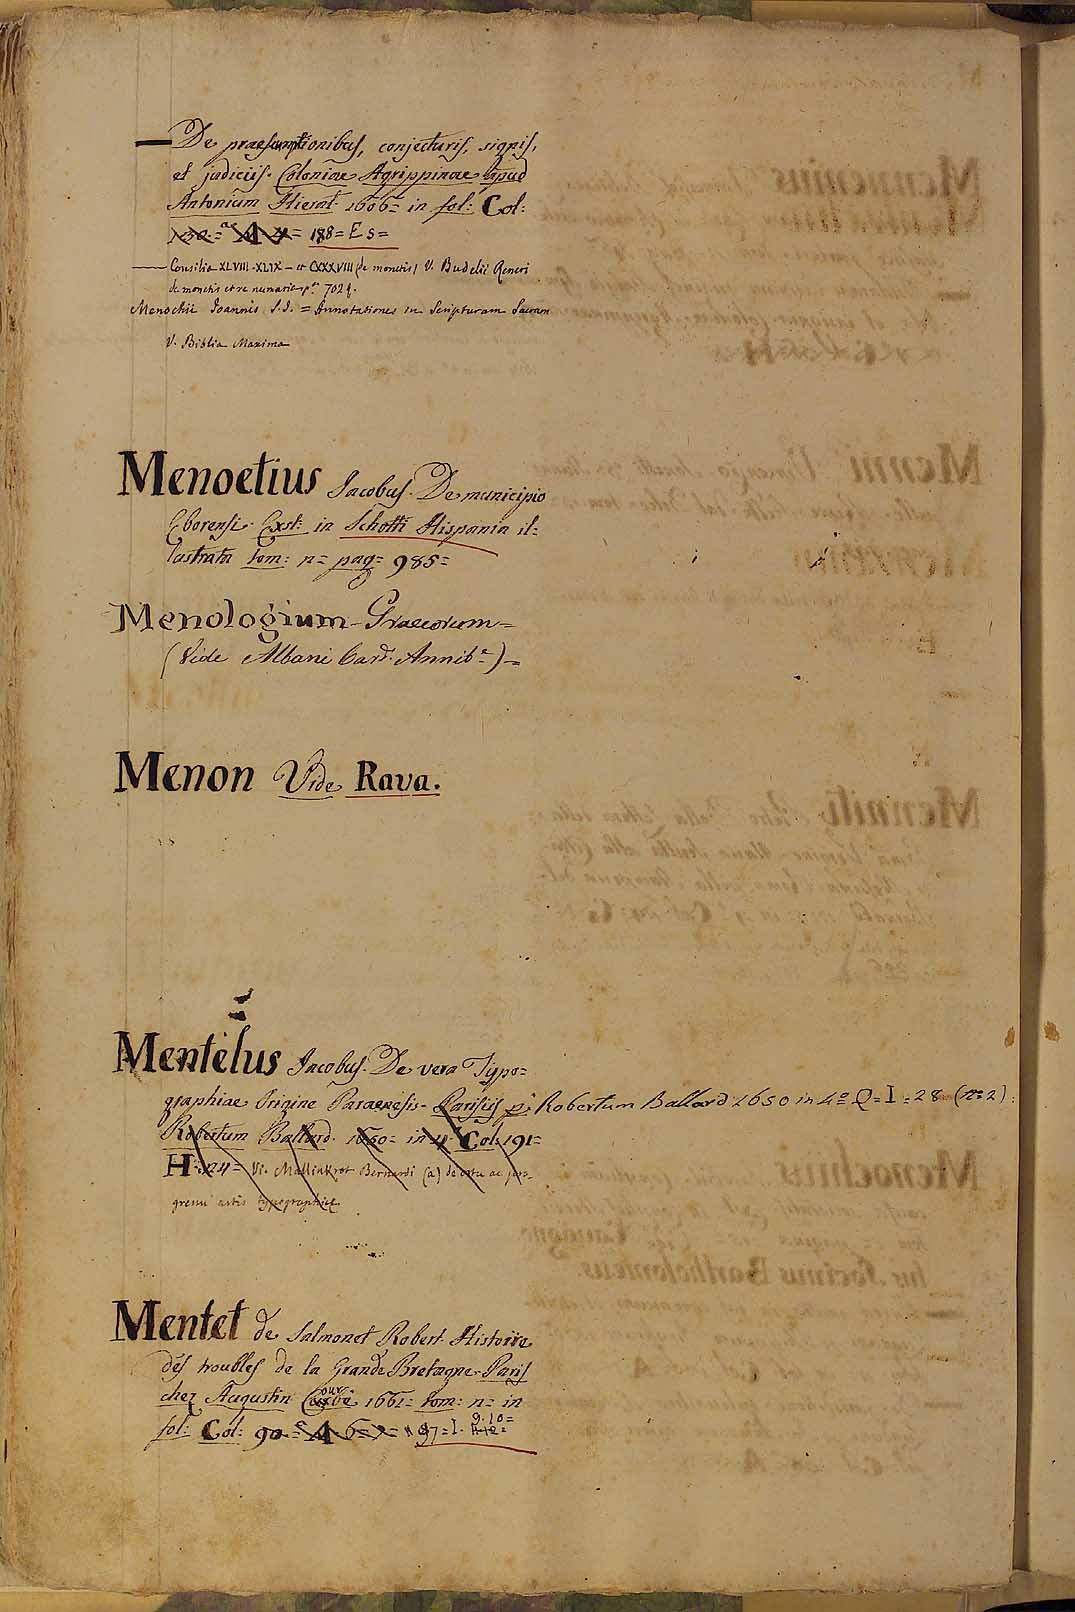 — De praesumptionibus, conjecturis, signis,
et judiciis. Coloniae Agrippinae apud
Antonium Hierat. 1606= in fol: Col:
188= E 5=
— Consilia XLVIII. XLIX – et CXXXVIII (de monetis) V. Budelii Reneri
de monetis et re numaria p. 702 f.
Menochii Joannis S.J. = Annotationes in Scripturam Sacram
V. Biblia Maxima
Menoetius Jacobus. De municipio
Eborensi. Exst: in Schotti Hispania il=
lustrata tom: n= pag= 985=
Menologium – Graecorum=
(Vide Albani Card.Annib.e)=
Menon Vide Rava.
Mentelus Jacobus. De vera Typo=
graphiae Origine Paraenesis- Parisiis p. Robertum Ballard 1650 in 4º Q=I=28 (nº2):
Robertum Ballard. 1650= in 4º Col: 191=
H: 124= Vi. Mallinkrot Bernardi (a) de ortu ac pro-
gressu artis typographicę
Mentet de Salmonet Robert. Histoire
des troubles de la Grande Bretagne- Paris
chez Augustin Courbé 1661= tom: n= in
fol: Col: 97= I. 9.10=